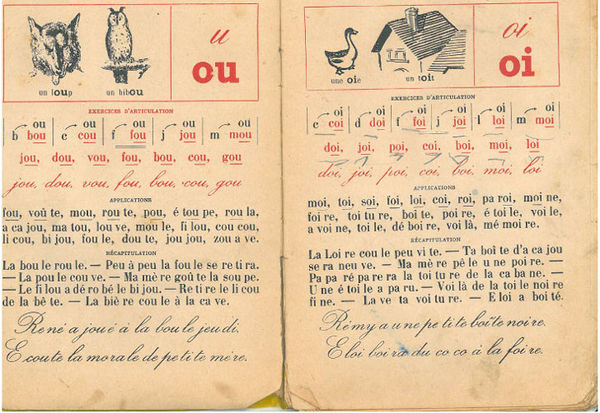 u
ou
un loup
un hibou
EXERCICES D'ARTICULATION
ou ou ou ou ou
b bou c cou f fou j jou m mou
jou, dou, vou, fou, bou, cou, gou
jou, dou, vou, fou, bou, cou, gou
APPLICATIONS
fou, voû te, mou, rou te, pou, é tou pe, rou la,
a ca jou, ma tou, lou ve, mou le, fi lou, cou cou,
li cou, bi jou, fou le, dou te, jou jou, zou a ve.
RÉCAPITULATION
La bou le rou le. — Peu à peu la fou le se re ti ra.
— La pou le cou ve. — Ma mè re goû te la sou pe.
— Le fi lou a dé ro bé le bi jou. — Re ti re le li cou
de la bê te. — La biè re cou le à la ca ve.
René a joué à la bou le jeu di.
Ecoute la morale de pe ti te mère.
oi
oi
une oie
un toit
EXERCICES D'ARTICULATION
oi oi oi oi oi oi
c coi d doi f foi j joi l loi m moi
doi, joi, poi, coi, boi, moi, loi
doi, joi, poi, coi, boi, moi, loi
APPLICATIONS
moi, toi, soi, foi, loi, coi, roi, pa roi, moi ne,
foi re, toi tu re, boî te, poi re, é toi le, voi le,
a voi ne, toi le, dé boi re, voi là, mé moi re.
RÉCAPITULATION
La Loi re cou le peu vi te. — Ta boî te d'a ca jou
se ra neu ve. — Ma mè re pè le u ne poi re. —
Pa pa ré pa re ra la toi tu re de la ca ba ne. —
U ne é toi le a pa ru. — Voi là de la toi le noi re
fi ne. — La ve ta voi tu re. — E loi a boi té.
Rémy a u ne pe ti te boîte noire.
Eloi boira du co co à la foire.